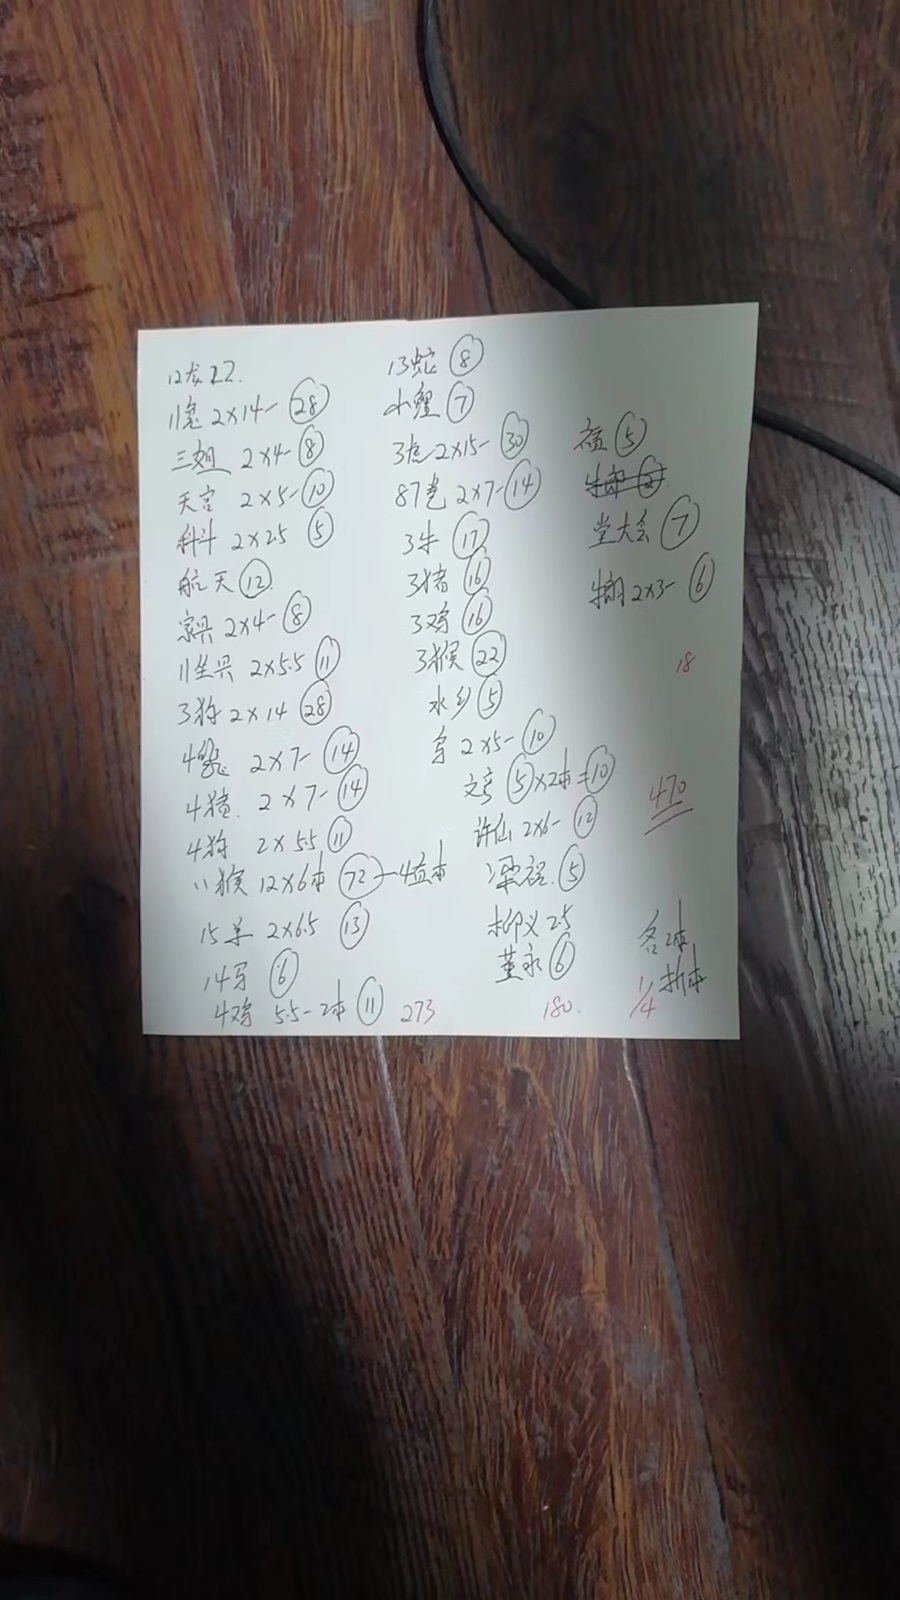 12龙22.
11兔 2×14- 28
三姐 2×4- 8
天宫 2×5- 10
科斗 2×2.5 5
航天 12
2×4- 8
11生只 2×5.5 11
3狗 2×14 28
2×7- 14
4猪 2×7- 14
4狗 2×5.5 11
11猴 12×6本 72 -4
15羊 2×6.5 13
14 6
4鸡 5.5-2本 11
273
13蛇 8
小鲤 7
3虎 2×15- 30
87 2×7- 14
3牛 17
3猪 16
3鸡 16
3猴 22
水乡 5
2×5- 10
5×2本=10
许仙 2×6- 12
梁祝 5
柳义 2.5
董永 6
180.
5
牛郎 2
堂大会 7
2×3- 6
18
470
各2本
1/4 折本